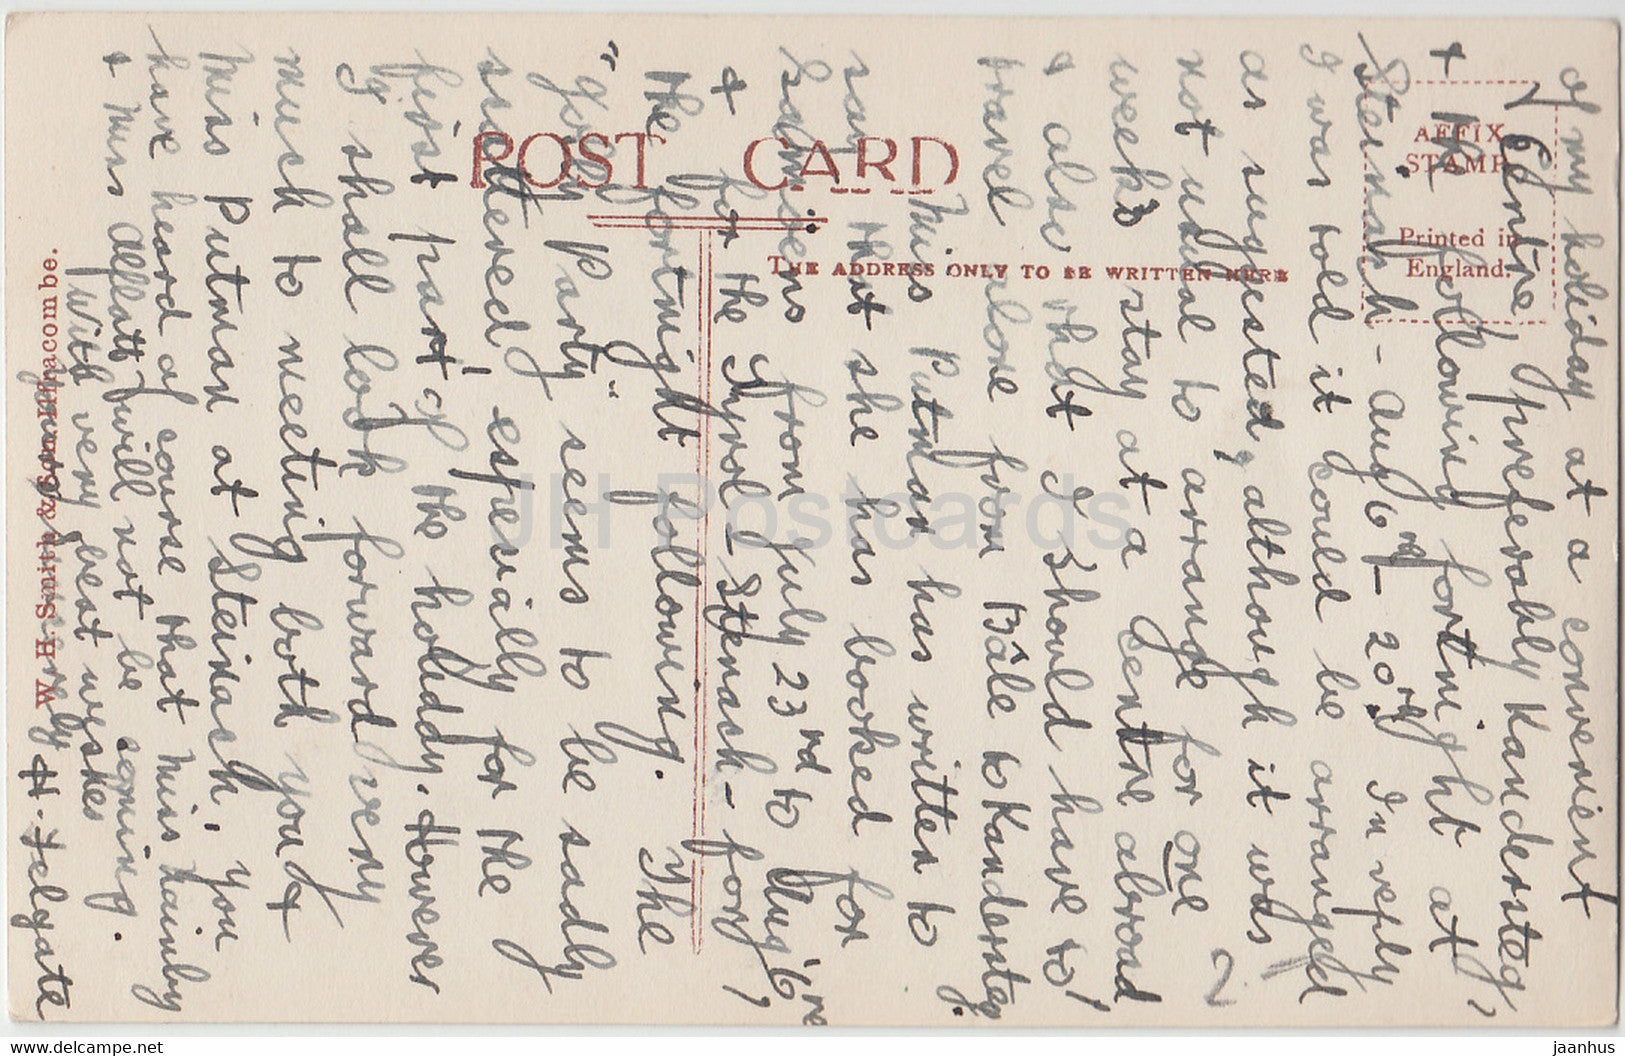 of my holiday at a convenient
centre, preferably Kandersteg,
+ the following fortnight at
Steinach - Aug 6th - 20th. In reply
I was told it could be arranged
as suggested, although it was
not usual to arrange for one
week's stay at a centre abroad
+ also that I should have to
travel alone from Bâle to Kandersteg.
Miss Putman has written to
say that she has booked for
Samoens from July 23rd to Aug 6th
+ for the Tyrol - Steinach - for
the fortnight following. The
"Jolly Party" seems to be sadly
scattered, especially for the
first part of the holiday. However
I shall look forward very
much to meeting both you +
Miss Putman at Steinach. You
have heard of course that Miss Hainby
+ Miss Allatt will not be coming.
With very best wishes
Yours sincerely H. Felgate
POST CARD
THE ADDRESS ONLY TO BE WRITTEN HERE
AFFIX
STAMP
Printed in
England.
W. H. Smith & Son Ilfracombe.
JH Postcards
www.delcampe.net
jaanhus